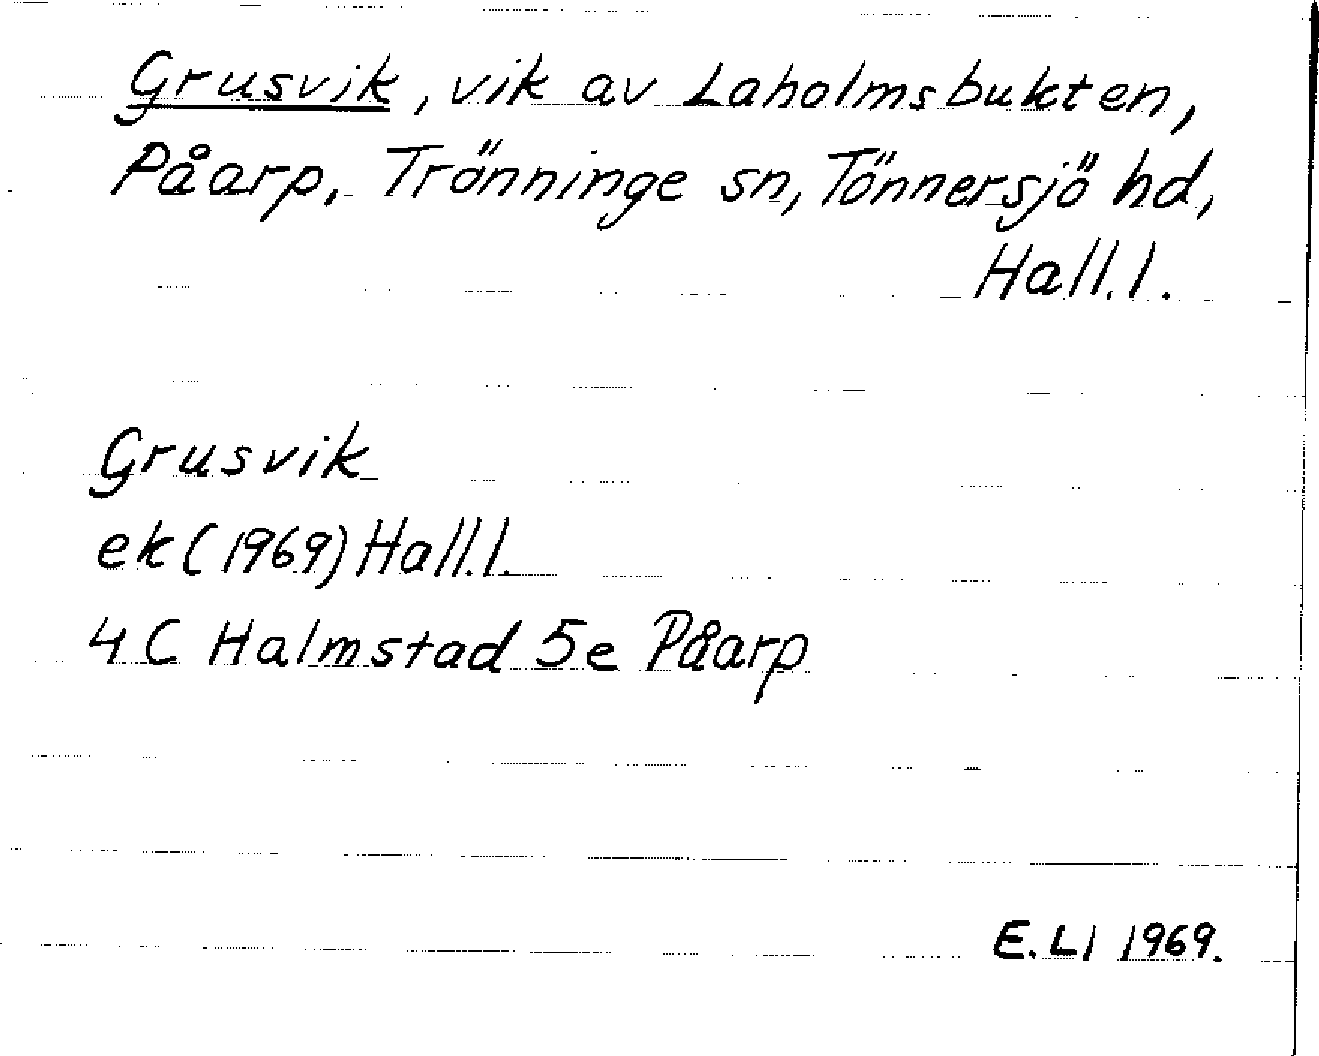 Grusvik, vik av Laholmsbukten,
Påarp, Trönninge sn, Tönnersjö hd,
Hall.l.
Grusvik
ek (1969) Hall.l.
4 C Halmstad 5e Påarp
E. Ll 1969.